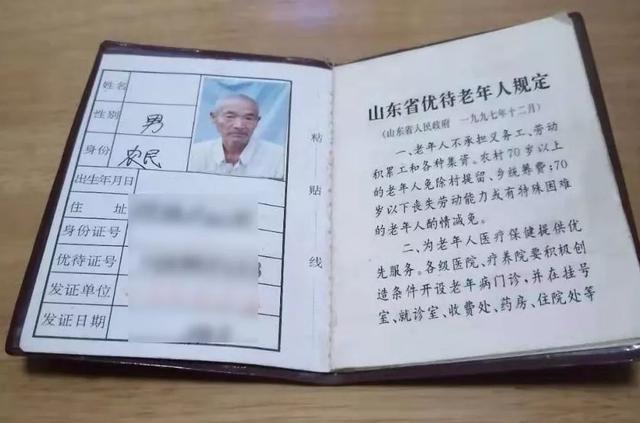 姓名
性别 男
身份 农民
出生年月日
住 址
身份证号
优待证号
发证单位
发证日期
粘贴线
山东省优待老年人规定
(山东省人民政府 一九九七年十二月)
一、老年人不承担义务工、劳动
积累工和各种集资。农村70岁以上
的老年人免除村提留、乡统筹费;70
岁以下丧失劳动能力或有特殊困难
的老年人酌情减免。
二、为老年人医疗保健提供优
先服务。各级医院、疗养院要积极创
造条件开设老年病门诊,并在挂号
室、就诊室、收费处、药房、住院处等